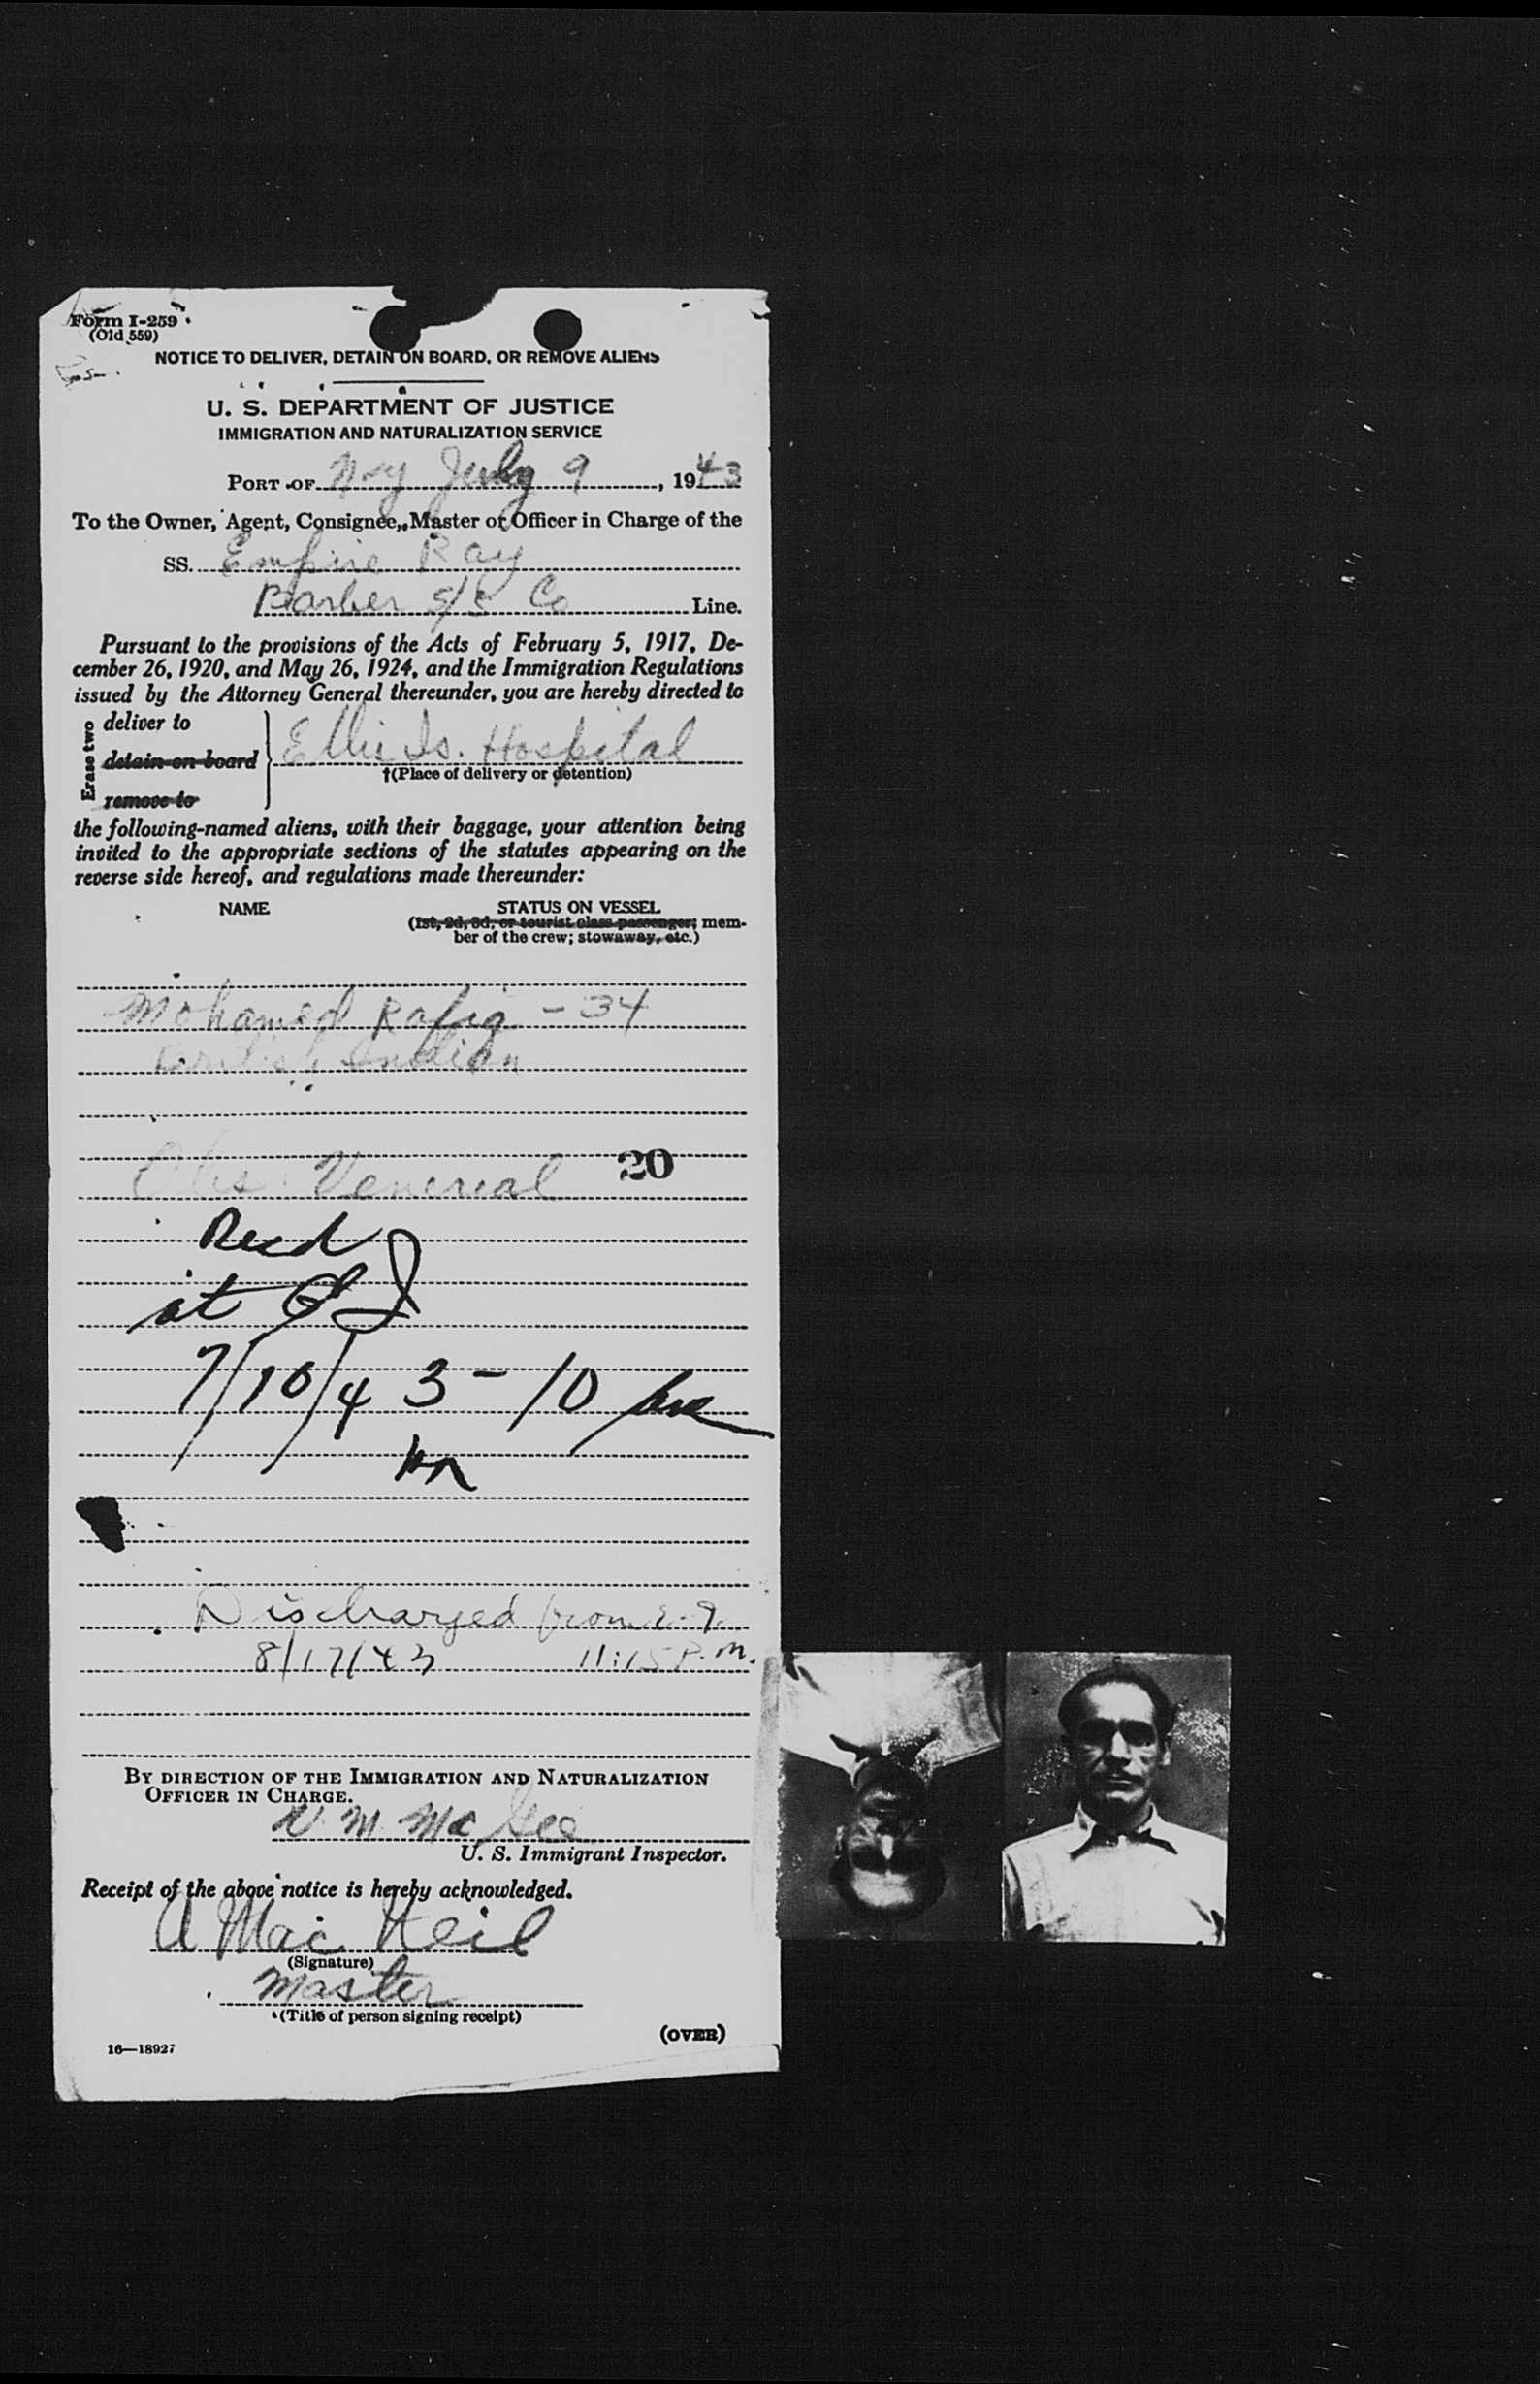 Form I-259
(Old 559)
NOTICE TO DELIVER, DETAIN ON BOARD, OR REMOVE ALIENS
U. S. DEPARTMENT OF JUSTICE
IMMIGRATION AND NATURALIZATION SERVICE
PORT OF N-y July 9, 1943
To the Owner, Agent, Consignee, Master or Officer in Charge of the
SS. Empire Ray
Barber S/S Co Line.
Pursuant to the provisions of the Acts of February 5, 1917, De-
cember 26, 1920, and May 26, 1924, and the Immigration Regulations
issued by the Attorney General thereunder, you are hereby directed to
Erase two
deliver to
detain on board
remove to
Ellis Is. Hospital
†(Place of delivery or detention)
the following-named aliens, with their baggage, your attention being
invited to the appropriate sections of the statutes appearing on the
reverse side hereof, and regulations made thereunder:
NAME STATUS ON VESSEL
(1st, 2d, 3d, or tourist class passenger; mem-
ber of the crew; stowaway, etc.)
Mohamed Rafiq - 34
British Indian
Obs. Venereal 20
Recd
at E I
7/10/43 - 10
Discharged from E. I.
8/17/43 11:15 P.M.
BY DIRECTION OF THE IMMIGRATION AND NATURALIZATION
OFFICER IN CHARGE.
McGee
U. S. Immigrant Inspector.
Receipt of the above notice is hereby acknowledged.
A MacNeil
(Signature)
Master
(Title of person signing receipt)
(OVER)
16—18927